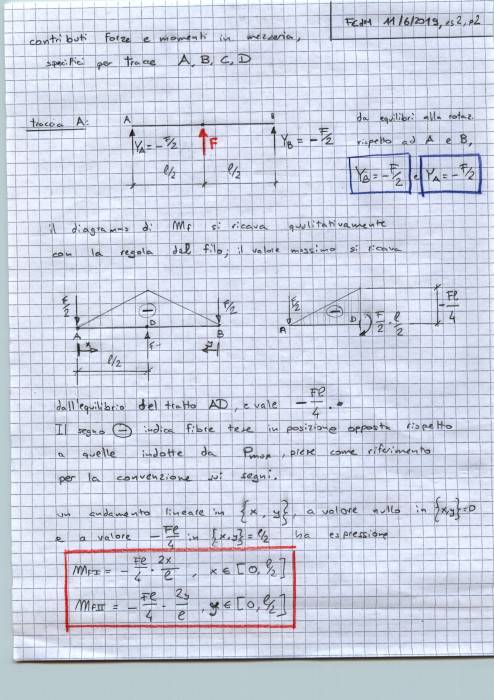 FCdM 11/6/2019, es2, p2
contributi forze e momenti in mezzeria,
specifici per tracce A, B, C, D
traccia A:
A B
da equilibri alla rotaz.
rispetto ad A e B,
YA = -F/2 F YB = -F/2
l/2 l/2
YB = -F/2 e YA = -F/2
il diagramma di Mf si ricava qualitativamente
con la regola del filo; il valore massimo si ricava
F/2 F/2 F/2
A D B A D F/2 · l/2 -Fl/4
x F y
l/2
dall'equilibrio del tratto AD, e vale -Fl/4.
Il segno ⊖ indica fibre tese in posizione opposta rispetto
a quelle indotte da come riferimento
per la convenzione sui segni.
un andamento lineare in {x, y}, a valore nullo in {x,y}=0
e a valore -Fl/4 in {x,y}=l/2 ha espressione
MFI = -Fl/4 · 2x/l , x ∈ [0, l/2]
MFII = -Fl/4 · 2y/l , y ∈ [0, l/2]